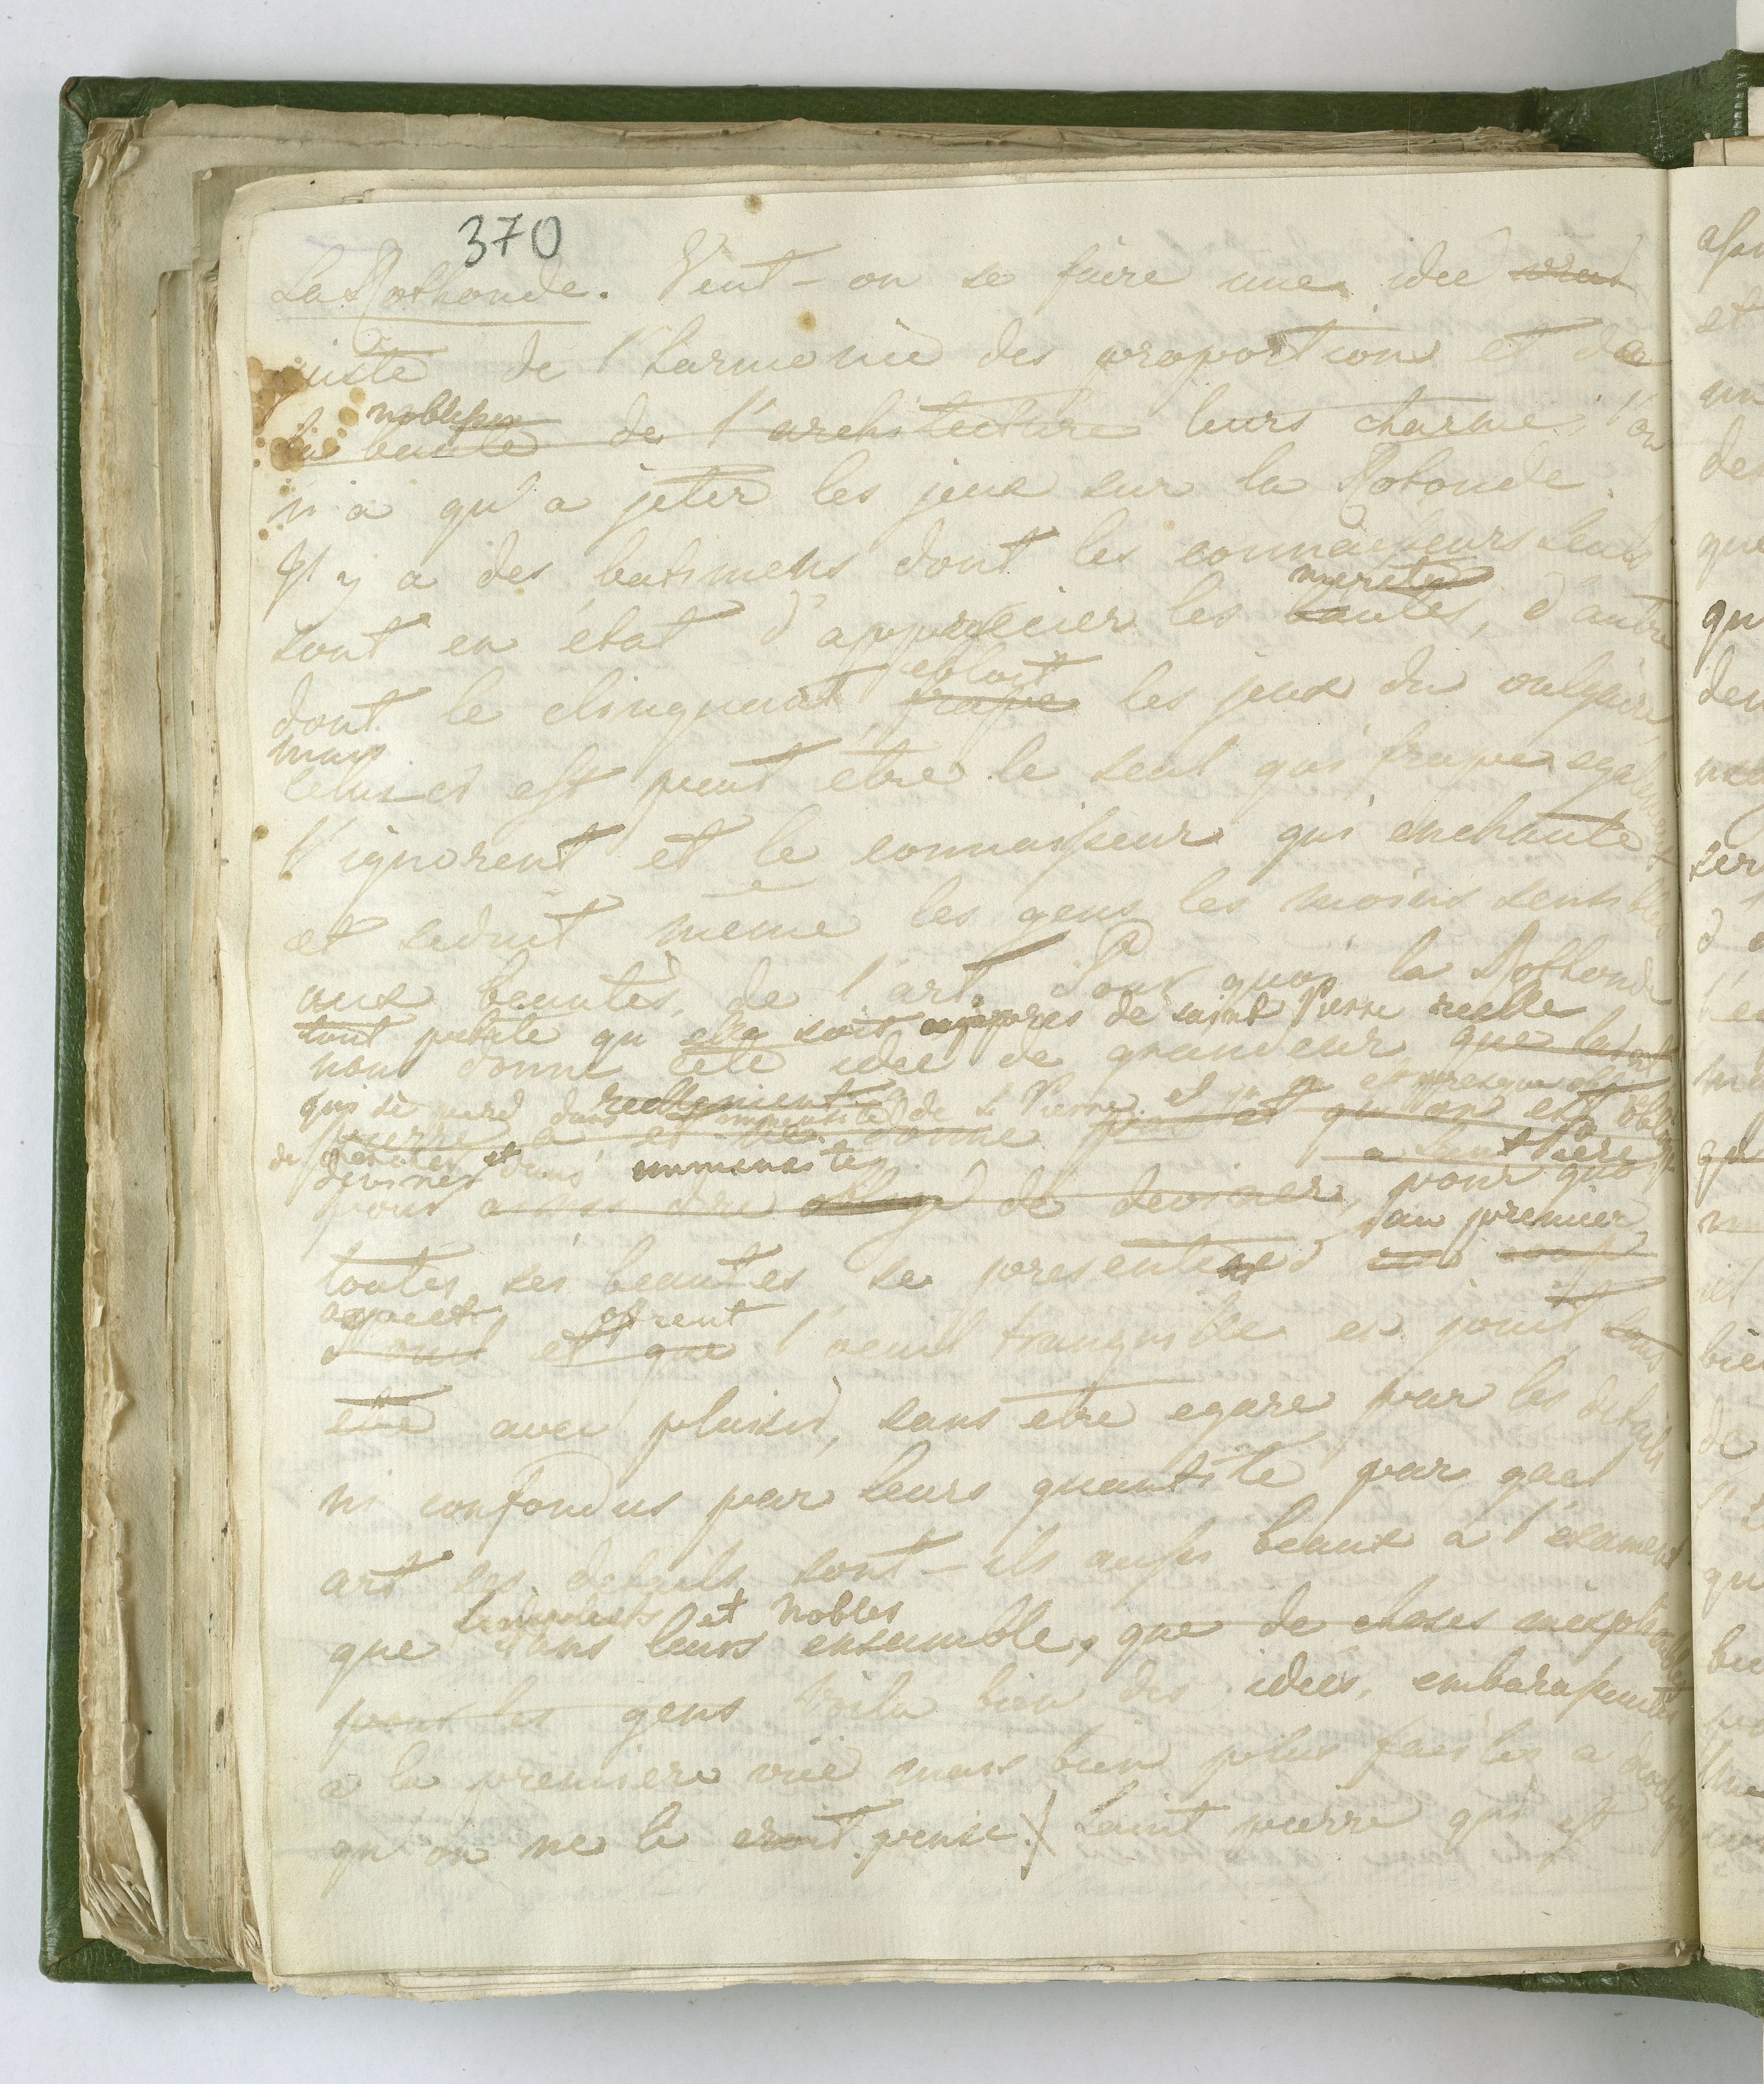 370
La Rothonde. Veut-on se faire une idee
juste de l'harmonie des proportion et de
noblesse
la beauté de l'architecture leurs charme, l'on
n'a qu'a jeter les jeux sur la Rotonde.
Il y a des batimens dont les connaisseurs seuls
merite
sont en état d'apprecier les bautes, d'autre
eblouit
dont le clinquant frape les jeux du vulgaire
mais
celui ci est peut être le seul qui frape egalement
l'ignorent et le connaisseur qui enchante
et seduit même les gens les moins sensibles
aux beautés de l'art. Pour quoi la Rothonde
tout petite qu elle soit aupres de saint Pierre reelle
nous donne cete idee de grandeur que
qui se perd dans reellement immensité de St Pierre et
pierre a et ne donne qu'on est oblige
de deviner et dans immensite
a Saint Piere
pour ainsi dire oblige de deviner, pour quoi
au premier
toutes ses beautes se presente
aspect offrent
et que l'oeuil tranquille en jouit sans
etre avec plaisir, sans etre egare par les details
ni confondus par leurs quantité par quel
art ses details sont-ils aussi beaux a l'exament
simples et nobles
que dans leurs ensemble, que de choses inexplicables
pour les gens Voila bien des idees, embarassentes
a la premiere vüe mais bien plus faciles a
qu'on ne le croit pense. Saint pierre qui est